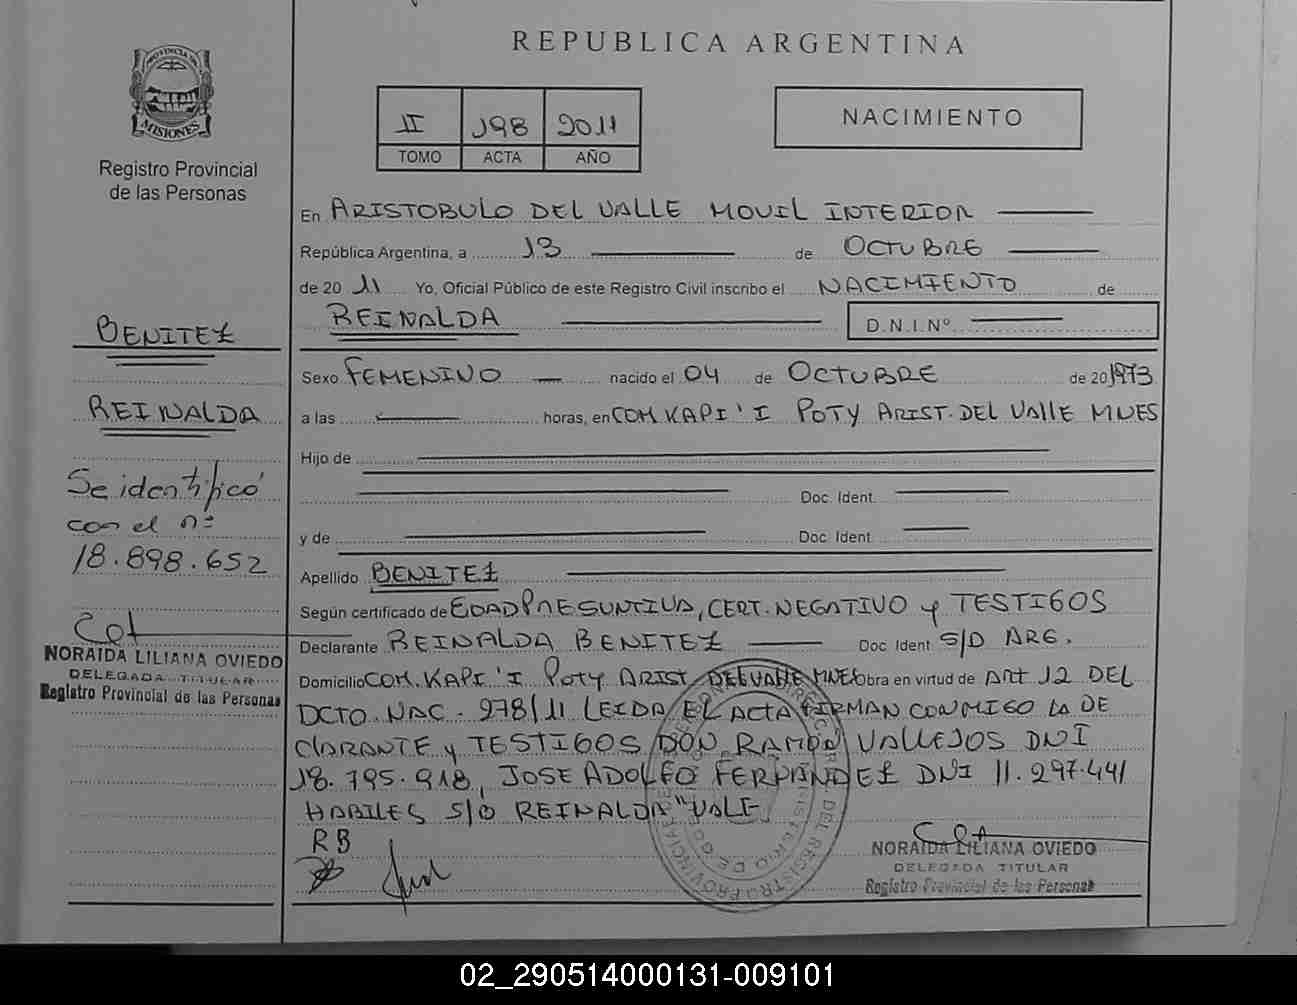 REPUBLICA ARGENTINA
PROVINCIA DE
MISIONES
Registro Provincial
de las Personas
II 198 2011
TOMO ACTA AÑO
NACIMIENTO
En ARISTOBULO DEL VALLE MOVIL INTERIOR
República Argentina, a 13 de OCTUBRE
de 20 11 Yo, Oficial Público de este Registro Civil inscribo el NACIMIENTO de
REINALDA D.N.I.Nº
Sexo FEMENINO nacido el 04 de OCTUBRE de 20 1973
a las horas, en COM KAPI'I POTY ARIST. DEL VALLE MNES
Hijo de
Doc. Ident.
y de Doc. Ident
Apellido BENITEZ
Según certificado de EDAD PRESUNTIVA, CERT. NEGATIVO y TESTIGOS
Declarante REINALDA BENITEZ Doc Ident S/D ARG.
Domicilio COM. KAPI'I POTY ARIST. DEL VALLE MNES Obra en virtud de ART 12 DEL
DCTO. NAC. 278/11 LEIDA EL ACTA FIRMAN CONMIGO LA DE
CLARANTE y TESTIGOS DON RAMÓN VALLEJOS DNI
18.795.918, JOSE ADOLFO FERNÁNDEZ DNI 11.297.441
HABILES S/O REINALDA "VALE
RB
NORAIDA LILIANA OVIEDO
DELEGADA TITULAR
Registro Provincial de las Personas
BENITEZ
REINALDA
Se identificó
con el nº
18.898.652
NORAIDA LILIANA OVIEDO
DELEGADA TITULAR
Registro Provincial de las Personas
02_290514000131-009101